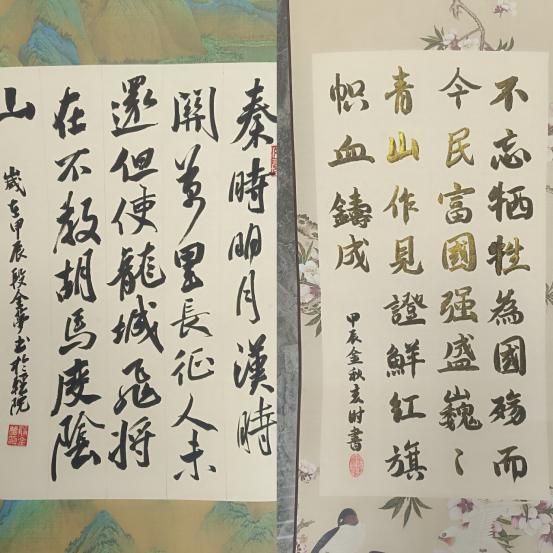 秦時明月漢時
關萬里長征人未
還但使龍城飛將
在不教胡馬度陰
山
歲在甲辰段金夢书於院
不忘牺牲為國殤而
今民富國强盛巍〻
青山作見證鮮紅旗
帜血鑄成
甲辰金秋玄时書